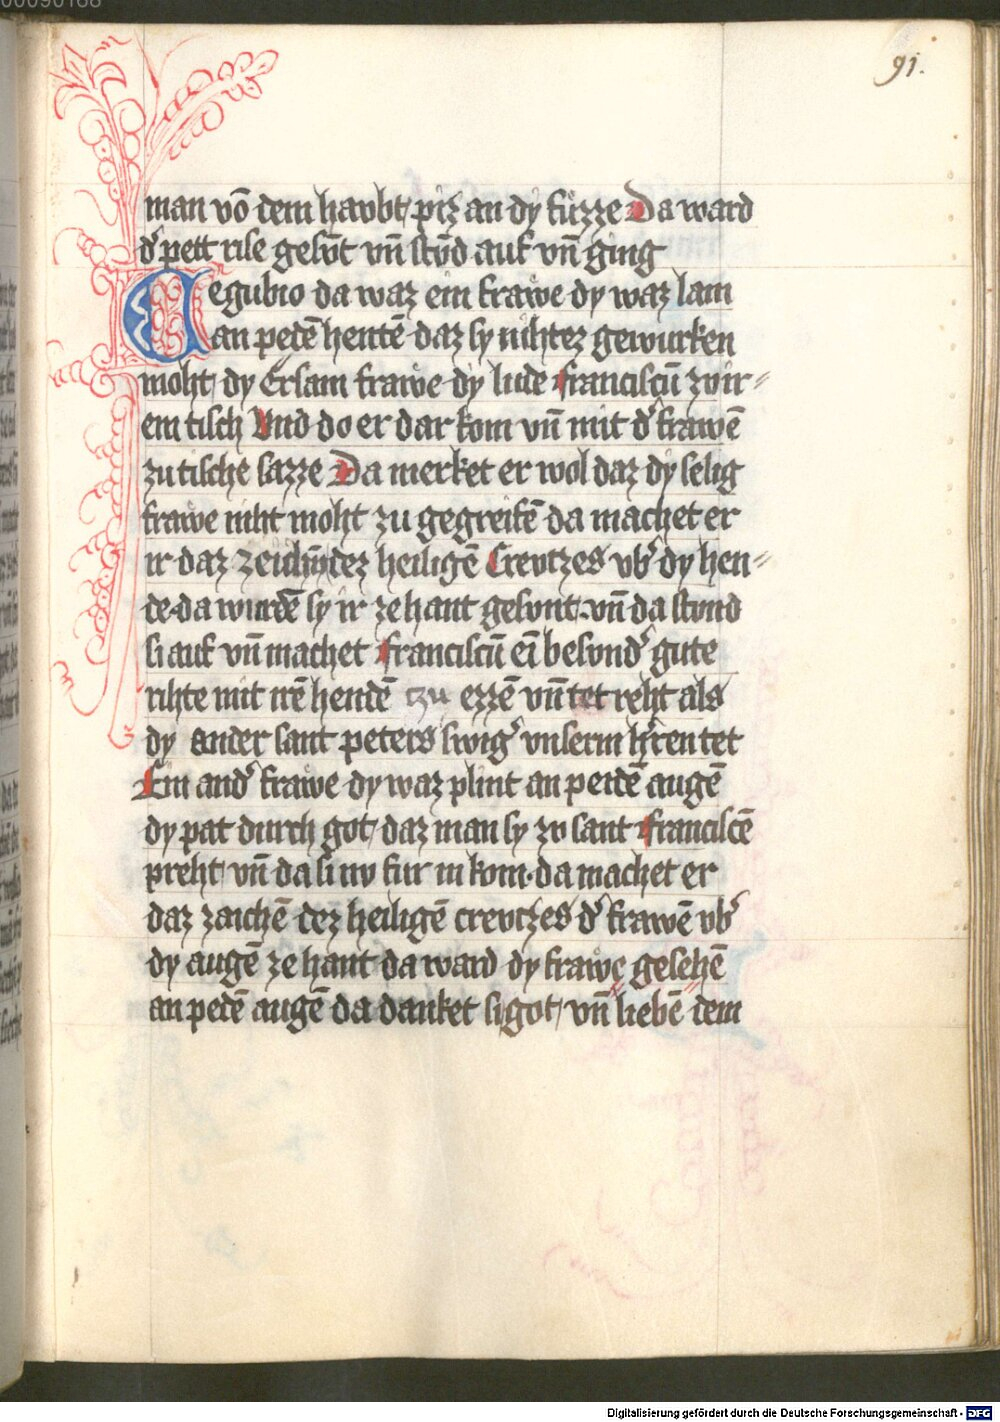 00090168
91.
man vō dem havbt piz an dy fuzze Da ward
d' pett rise gesūt vn̄ stūd auf vn̄ ging
Cegubio da waz ein frawe dy waz lam
an pedē hentē daz sy nihtez gewurken
moht dy Ersam frawe dy lude franciscū zv ir⸗
em tisch Vnd do er dar kom vn̄ mit d' frawē
zu tische sazze Da merket er wol daz dy selig
frawe niht moht zu gegreifē da machet er
ir daz zeichn̄ dez heiligē Crevtzes vb' dy hen⸗
de da wurdē sy ir ze hant gesvnt vn̄ da stvnd
si auf vn̄ machet franciscū eī besvnd' gute
rihte mit irē hendē tzu ezzē vn̄ tet reht als
dy ander sant peters swig' vnserm h'ren tet
Ein and' frawe dy waz plint an peidē augē
dy pat durch got daz man sy zv sant franciscē
preht vn̄ da si nv fur in kom da machet er
daz zaichē dez heiligē crevtzes d' frawē vb'
dy augē ze hant da ward dy frawe gesehē
an pedē augē da danket si got vn̄ liebē dem
Digitalisierung gefördert durch die Deutsche Forschungsgemeinschaft - DFG